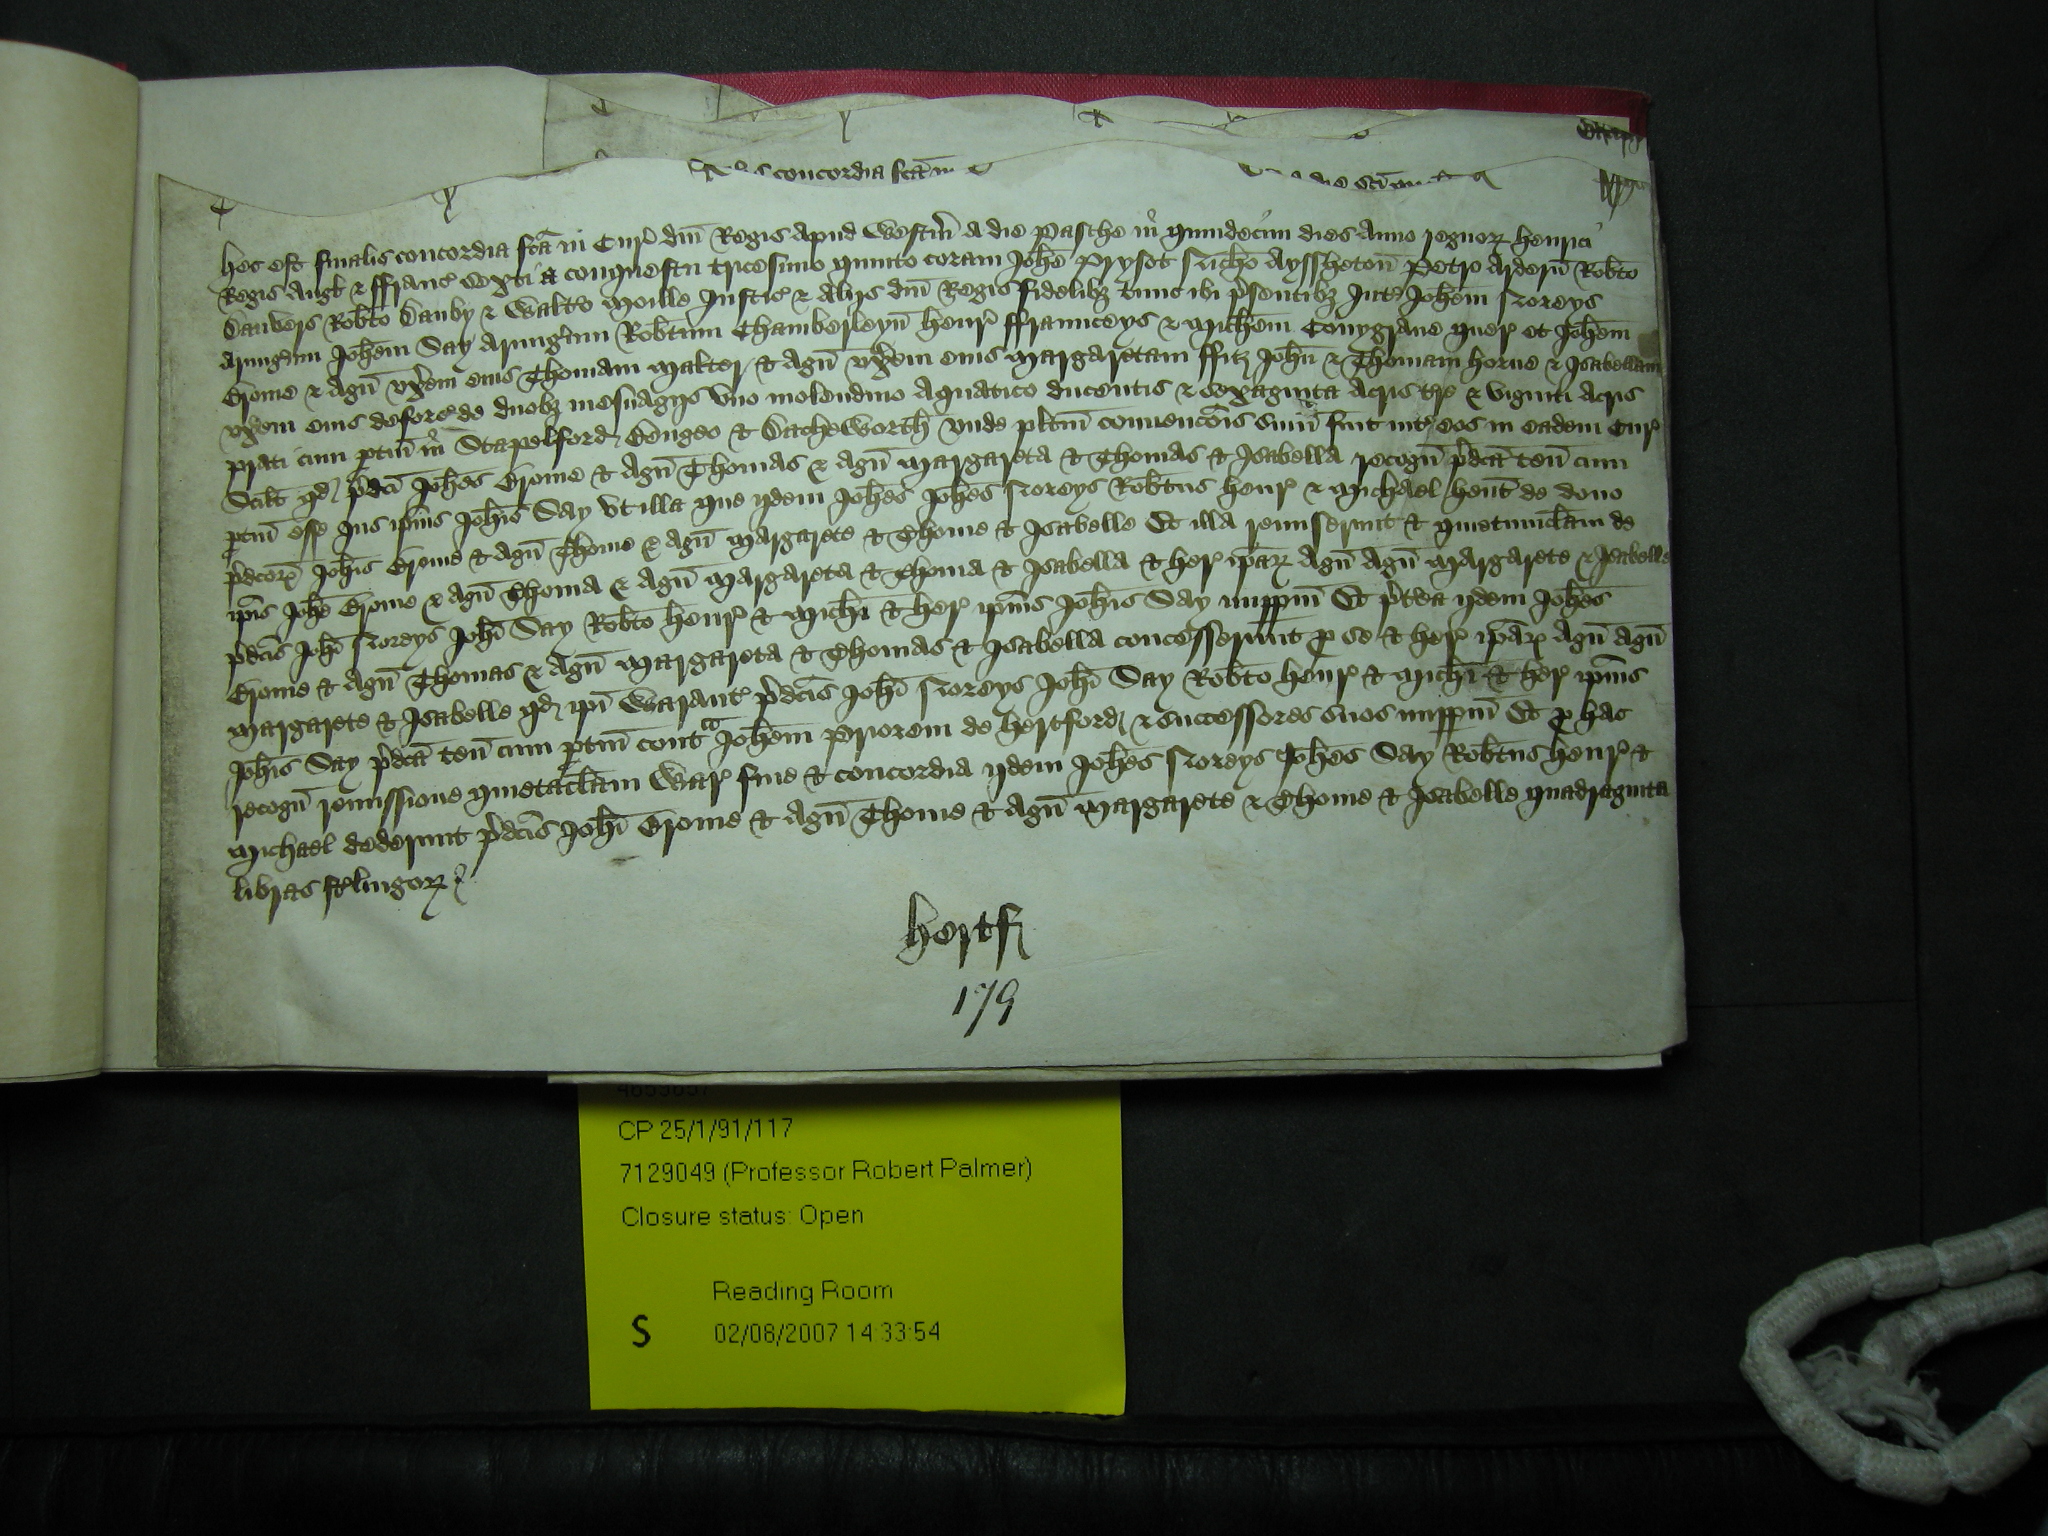 Hec est finalis concordia fcā in Cur̄ dn̄i Regis apud Westm̄ a die Pasche in quindecim dies Anno regnoꝝ Henrici
Regis Angł & ffranc̄ sexti a conquestu tricesimo quinto coram Joħe Prysot Nicħo Ayssheton̄ Petro Ardern̄ Rob̄to
Danvers Rob̄to Danby & Walt̄o Moille Justic̄ & aliis dn̄i Regis fidelibꝫ tunc ibi p̄sentibꝫ Int̄ Joħem Noreys
Armiḡum Joħem Say Armiḡum Rob̄tum Chamberleyn̄ Henr̄ ffraunceys & Micħem Conygrave quer̄ et Joħem
Crome & Agn̄ ux̄em eius Thomam Malter & Agn̄ ux̄em eius Margaretam ffitz John̄ & Thomam Horne & Isabellam
ux̄em eius deforc̄ de duobꝫ mesuagiis uno molendino aquatico ducentis & sexaginta acris tr̄e & viginti acris
prati cum ptin̄ in Stapelford Bengeo & Dacheworth unde pl̄itum convenc̄ōis sum̄ fuit int̄ eos in eadem Cur̄
Scilt qd p̄dc̄i Joħes Crome & Agn̄ Thomas & Agn̄ Margareta & Thomas & Isabella recogn̄ p̄dc̄a ten̄ cum
ptin̄ esse Jus ip̄ius Joħis Say ut illa que iidem Joħes Joħes Noreys Rob̄tus Henr̄ & Michael hent de dono
p̄dc̄oꝝ Joħis Crome & Agn̄ Thome & Agn̄ Margarete & Thome & Isabelle Et illa remiserunt & quietumclam̄ de
ip̄is Joħe Crome & Agn̄ Thoma & Agn̄ Margareta & Thoma & Isabella & her̄ ip̄aꝝ Agn̄ Agn̄ Margarete & Isabelle
p̄dc̄is Joħi Noreys Joħi Say Rob̄to Henr̄ & Micħi & her̄ ip̄ius Joħis Say imppm̄ Et p̄t̄ea iidem Joħes
Crome & Agn̄ Thomas & Agn̄ Margareta & Thomas & Isabella concesserunt p se & her̄ ip̄aꝝ Agn̄ Agn̄
Margarete & Isabelle qd ip̄i Warant̄ p̄dc̄is Joħi Noreys Joħi Say Rob̄to Henr̄ & Micħi & her̄ ip̄ius
Joħis Say p̄dc̄a ten̄ cum ptin̄ contᵃ Joħem Priorem de Hertford & successores suos imppm̄ Et p hac
recogn̄ remissione quietaclam̄ War̄ fine & concordia iidem Joħes Noreys Joħes Say Rob̄tus Henr̄ &
Michael dederunt p̄dc̄is Joħi Crome & Agn̄ Thome & Agn̄ Margarete & Thome & Isabelle quadraginta
libras st̄lingoꝝ
Hertf
179
CP 25/1/91/117
7129049 (Professor Robert Palmer)
Closure status: Open
Reading Room
S 02/08/2007 14:33:54